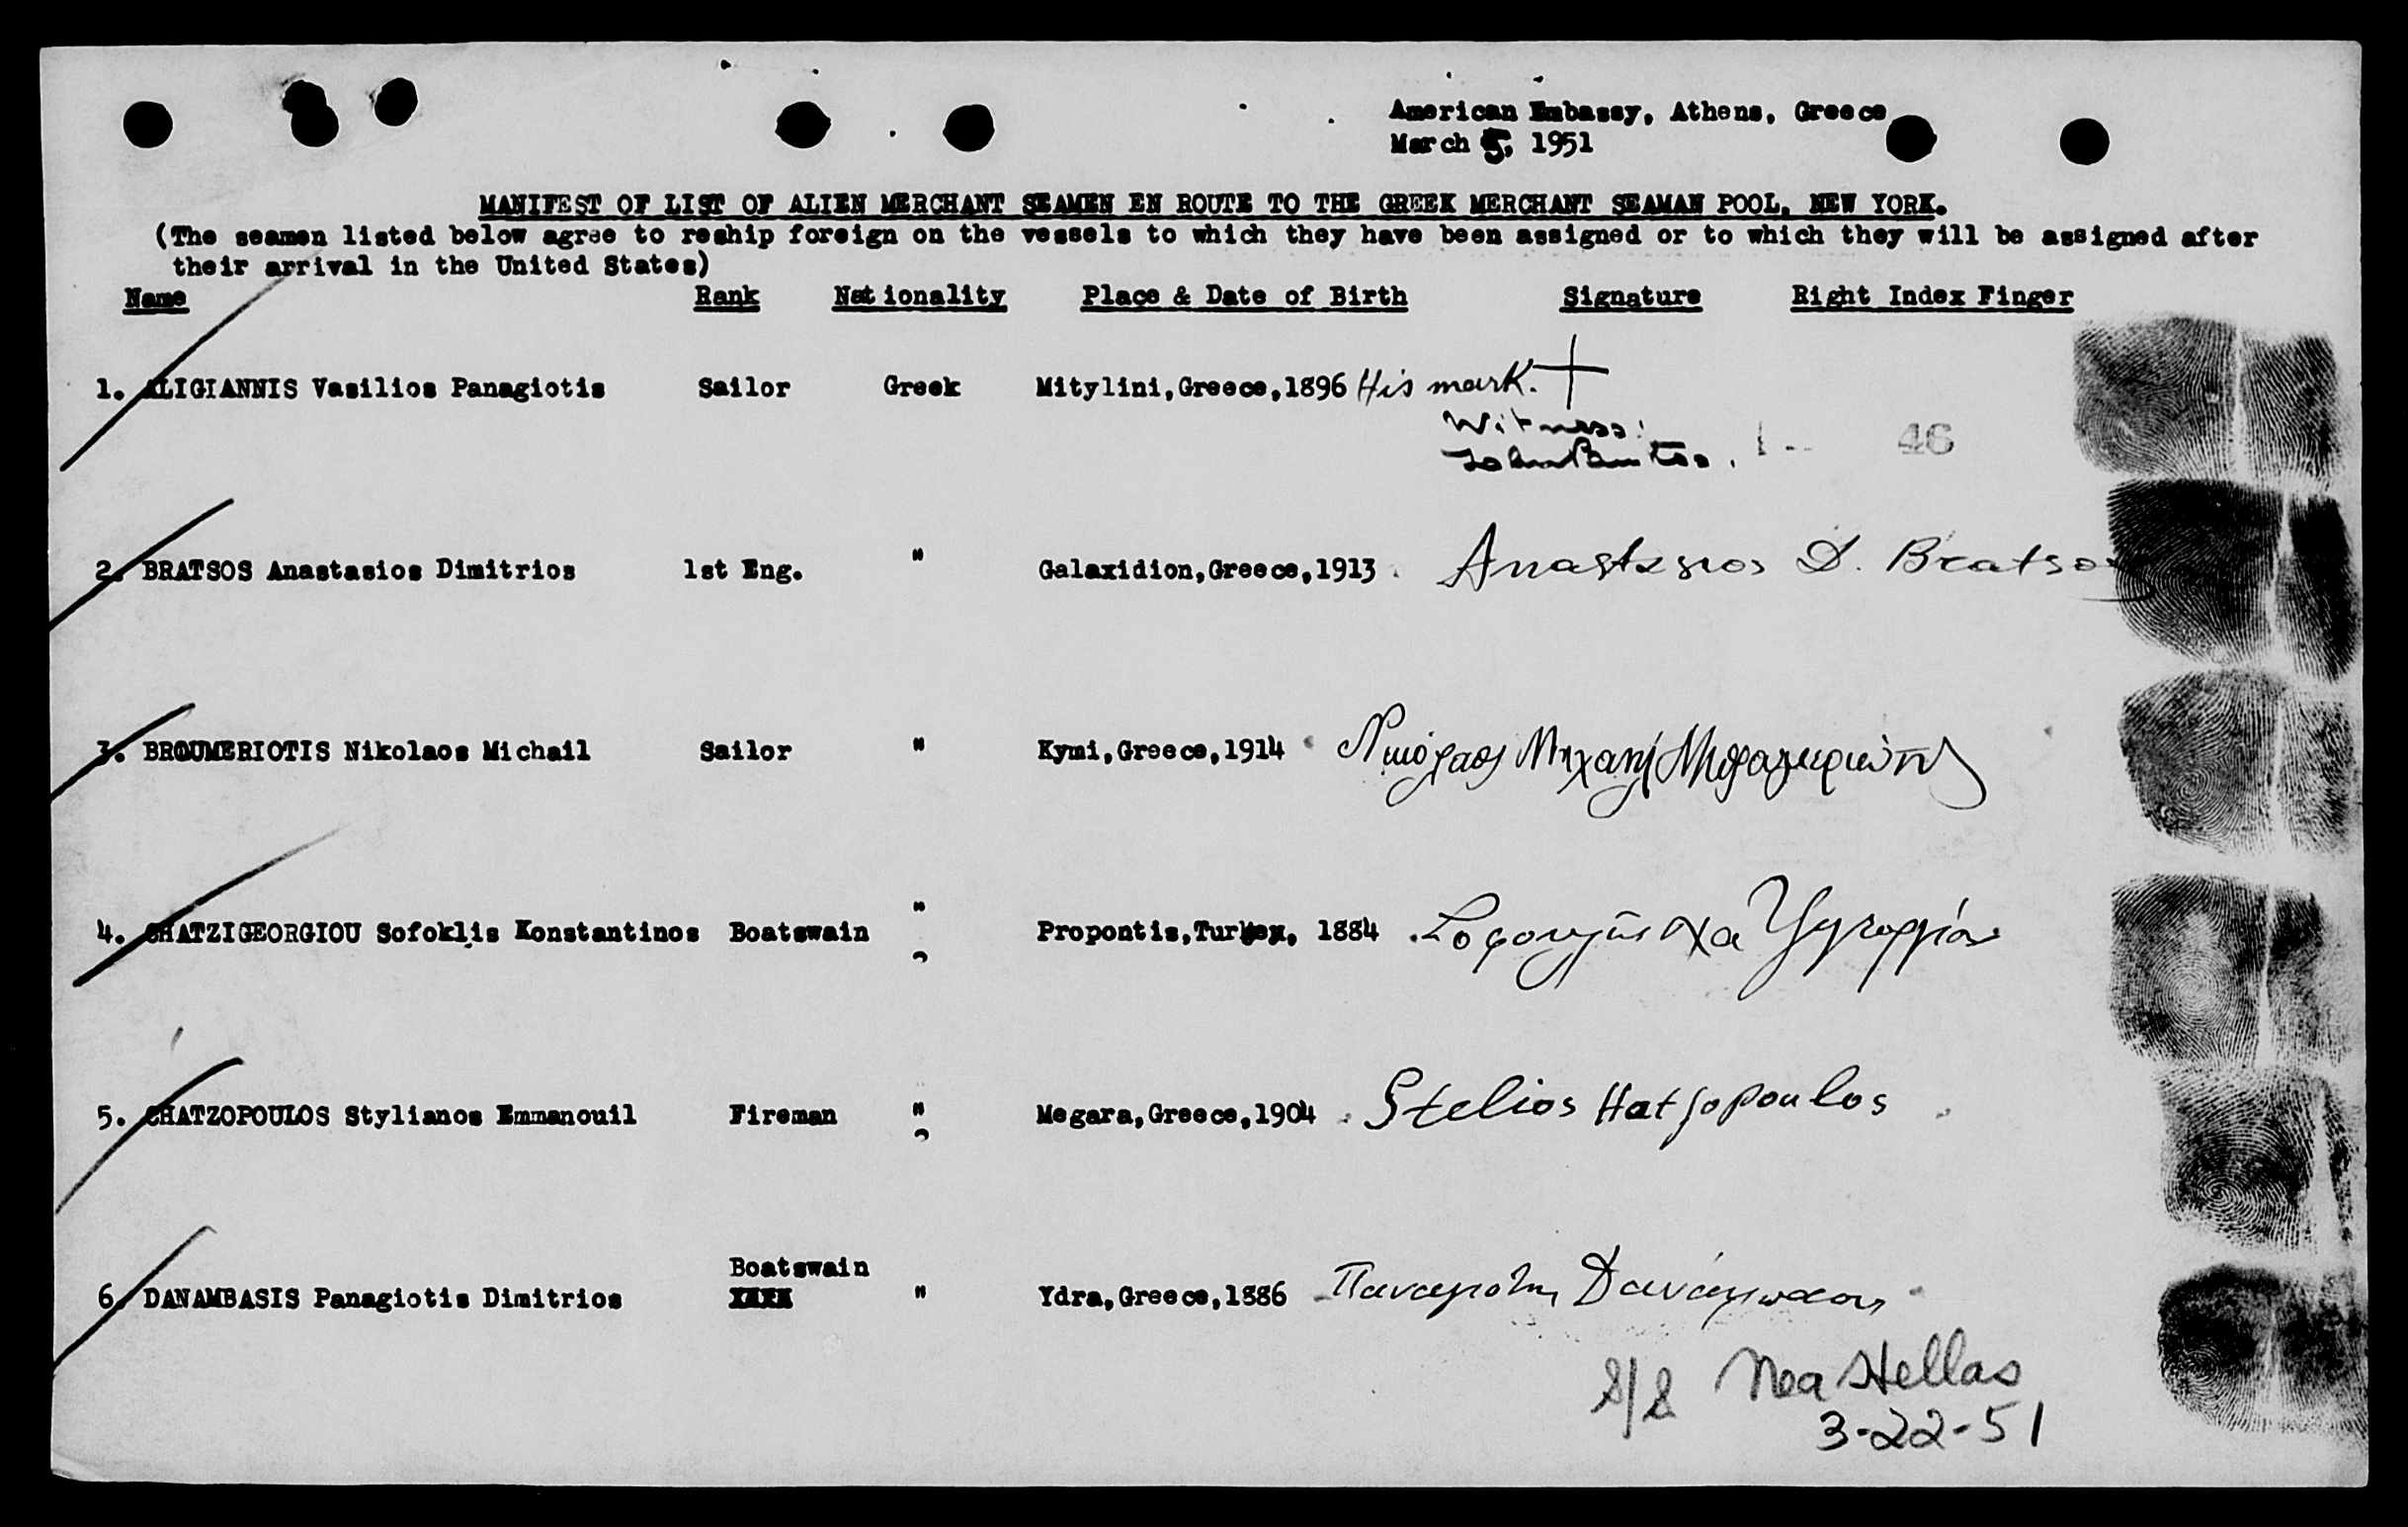 American Embassy, Athens, Greece
March 5, 1951
MANIFEST OF LIST OF ALIEN MERCHANT SEAMEN EN ROUTE TO THE GREEK MERCHANT SEAMAN POOL, NEW YORK.
(The seamen listed below agree to reship foreign on the vessels to which they have been assigned or to which they will be assigned after
their arrival in the United States)
Name Rank Nationality Place & Date of Birth Signature Right Index Finger
1. ALIGIANNIS Vasilios Panagiotis Sailor Greek Mitylini,Greece,1896 His mark. +
Witness:
John 1 -- 46
2. BRATSOS Anastasios Dimitrios 1st Eng. " Galaxidion,Greece,1913 Anastasios D. Bratsos
3. BROUMERIOTIS Nikolaos Michail Sailor " Kymi,Greece,1914 Νικόλαος Μιχαήλ
4. CHATZIGEORGIOU Sofoklis Konstantinos Boatswain " Propontis,Turkey, 1884 Σοφοκλής Χατζηγεωργίου
5. CHATZOPOULOS Stylianos Emmanouil Fireman " Megara,Greece,1904 Stelios Hatzopoulos
Boatswain
6. DANAMBASIS Panagiotis Dimitrios XXXX " Ydra,Greece,1886 Παναγιώτης Δανάμπασης
S/S Nea Hellas
3-22-51